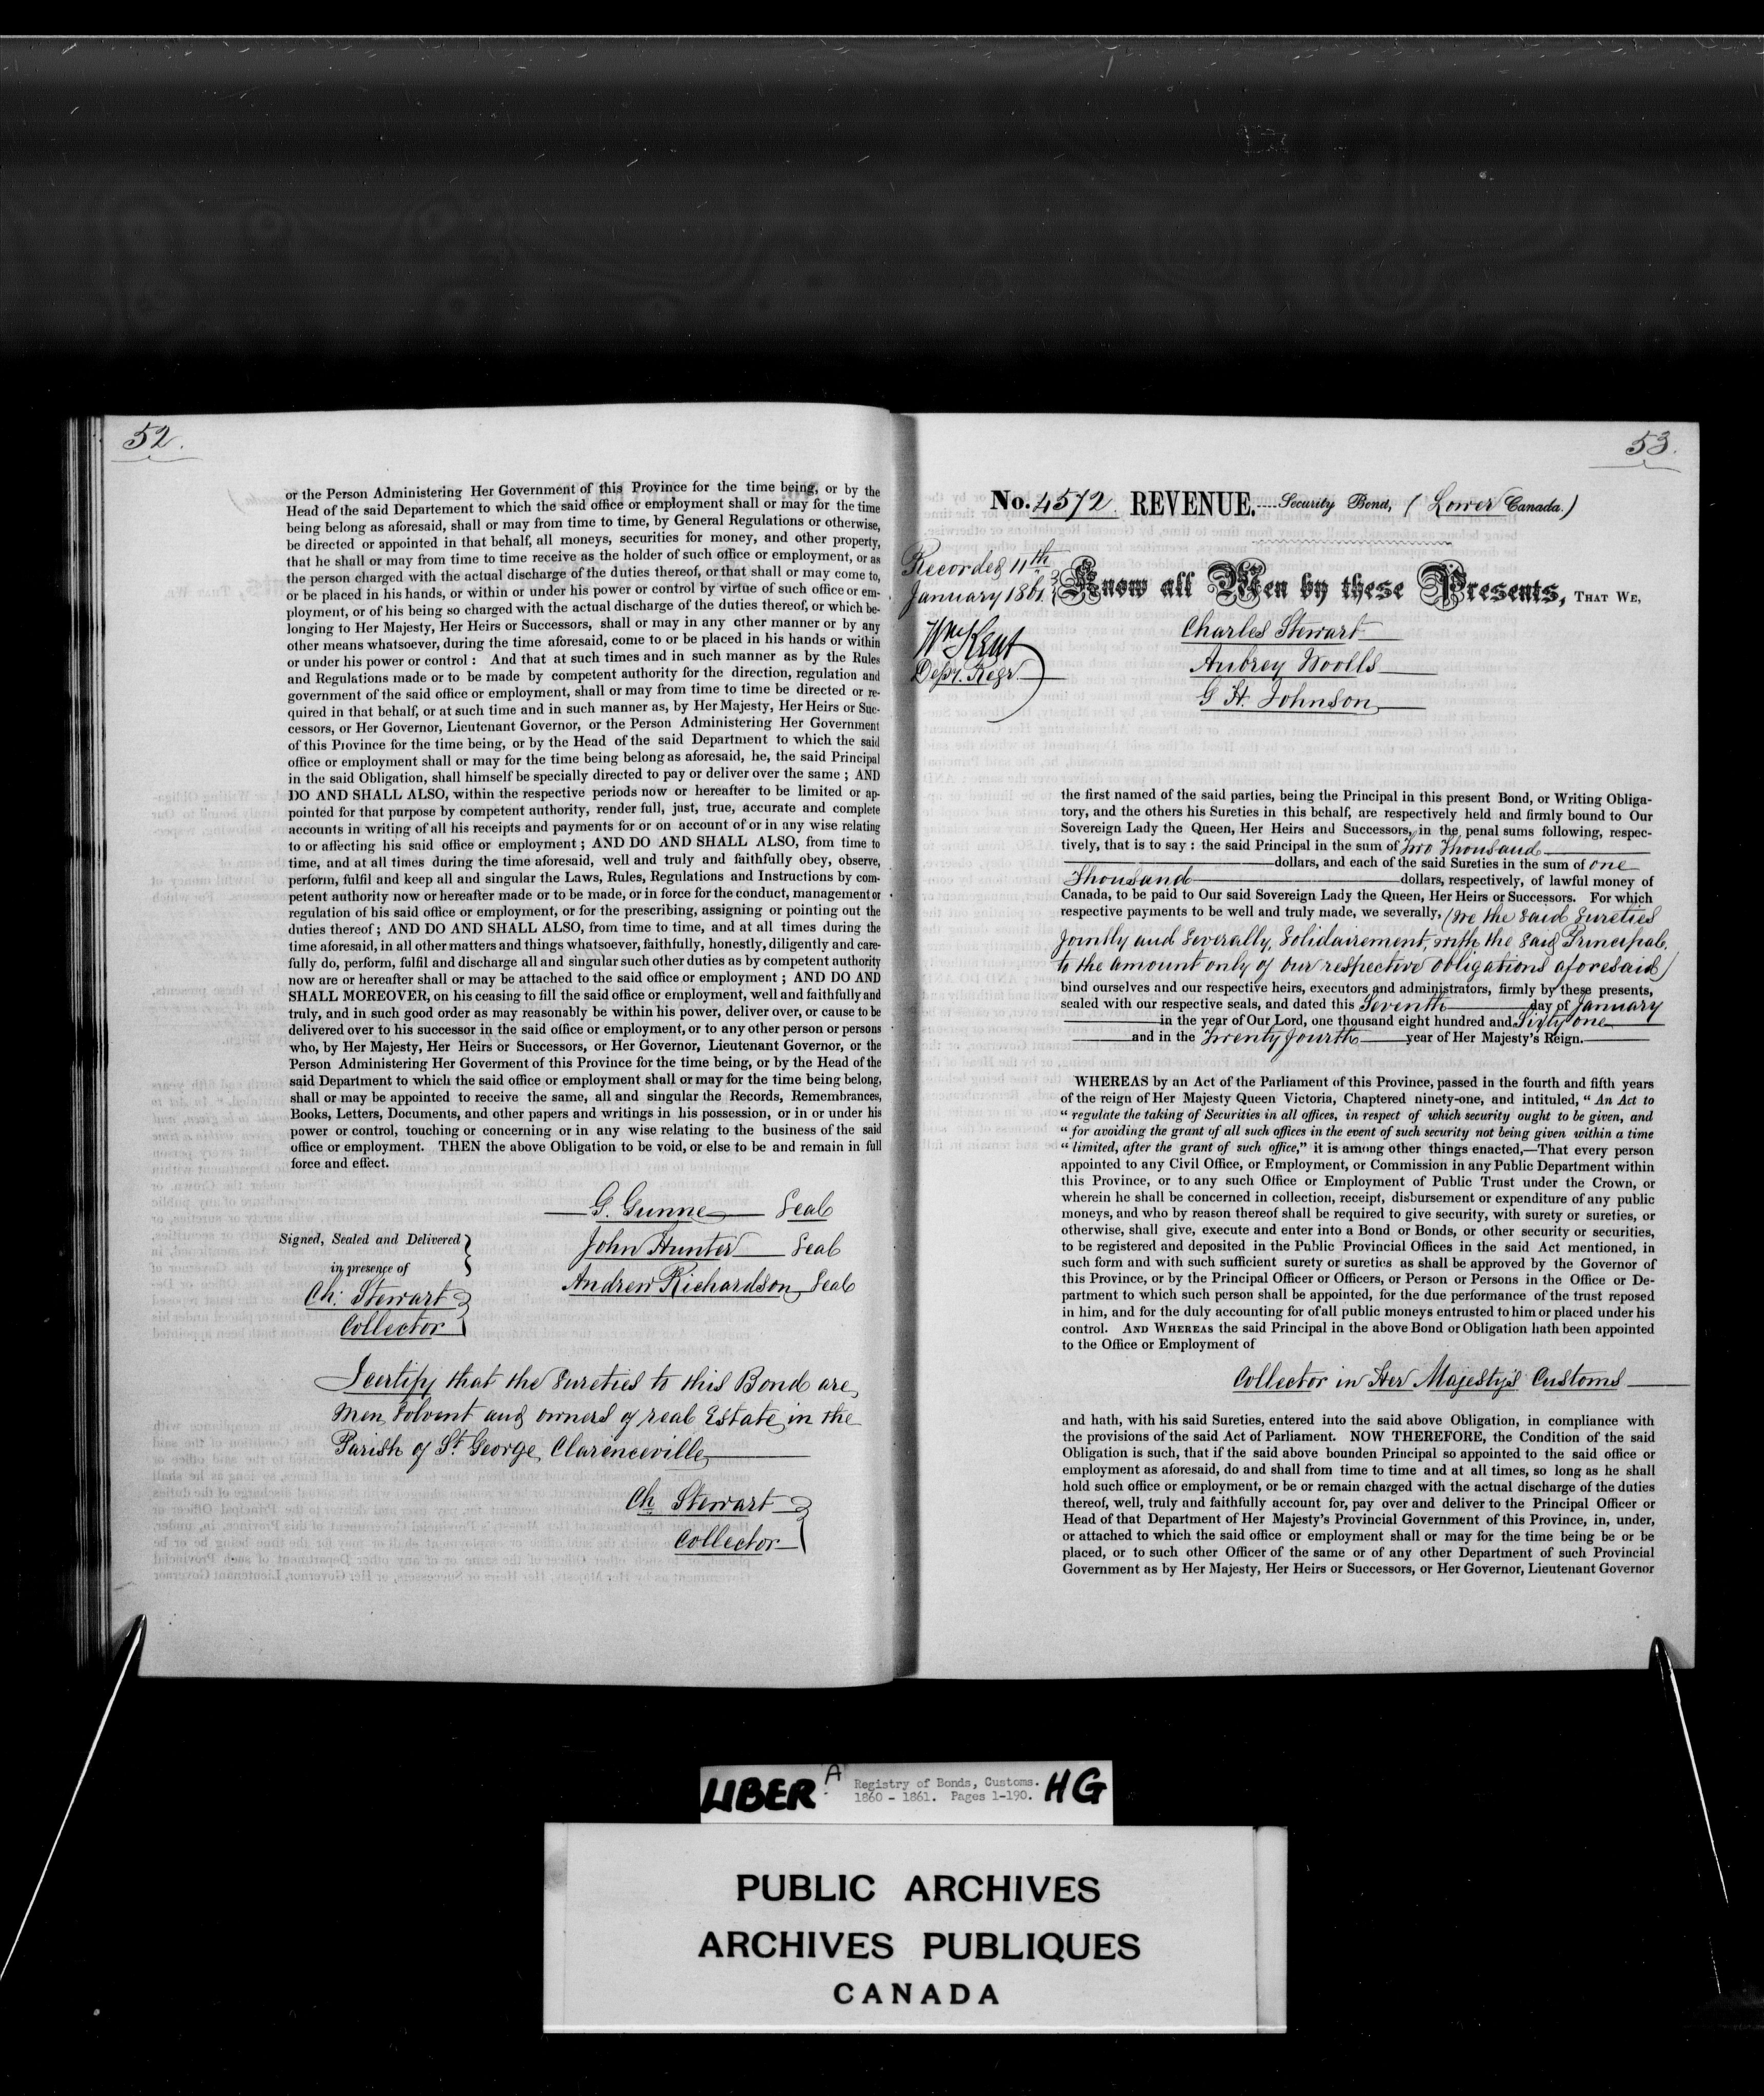 52.
or the Person Administering Her Government of this Province for the time being, or by the
Head of the said Departement to which the said office or employment shall or may for the time
being belong as aforesaid, shall or may from time to time, by General Regulations or otherwise,
be directed or appointed in that behalf, all moneys, securities for money, and other property,
that he shall or may from time to time receive as the holder of such office or employment, or as
the person charged with the actual discharge of the duties thereof, or that shall or may come to,
or be placed in his hands, or within or under his power or control by virtue of such office or em-
ployment, or of his being so charged with the actual discharge of the duties thereof, or which be-
longing to Her Majesty, Her Heirs or Successors, shall or may in any other manner or by any
other means whatsoever, during the time aforesaid, come to or be placed in his hands or within
or under his power or control : And that at such times and in such manner as by the Rules
and Regulations made or to be made by competent authority for the direction, regulation and
government of the said office or employment, shall or may from time to time be directed or re-
quired in that behalf, or at such time and in such manner as, by Her Majesty, Her Heirs or Suc-
cessors, or Her Governor, Lieutenant Governor, or the Person Administering Her Government
of this Province for the time being, or by the Head of the said Department to which the said
office or employment shall or may for the time being belong as aforesaid, he, the said Principal
in the said Obligation, shall himself be specially directed to pay or deliver over the same ; AND
DO AND SHALL ALSO, within the respective periods now or hereafter to be limited or ap-
pointed for that purpose by competent authority, render full, just, true, accurate and complete
accounts in writing of all his receipts and payments for or on account of or in any wise relating
to or affecting his said office or employment ; AND DO AND SHALL ALSO, from time to
time, and at all times during the time aforesaid, well and truly and faithfully obey, observe,
perform, fulfil and keep all and singular the Laws, Rules, Regulations and Instructions by com-
petent authority now or hereafter made or to be made, or in force for the conduct, management or
regulation of his said office or employment, or for the prescribing, assigning or pointing out the
duties thereof ; AND DO AND SHALL ALSO, from time to time, and at all times during the
time aforesaid, in all other matters and things whatsoever, faithfully, honestly, diligently and care-
fully do, perform, fulfil and discharge all and singular such other duties as by competent authority
now are or hereafter shall or may be attached to the said office or employment ; AND DO AND
SHALL MOREOVER, on his ceasing to fill the said office or employment, well and faithfully and
truly, and in such good order as may reasonably be within his power, deliver over, or cause to be
delivered over to his successor in the said office or employment, or to any other person or persons
who, by Her Majesty, Her Heirs or Successors, or Her Governor, Lieutenant Governor, or the
Person Administering Her Goverment of this Province for the time being, or by the Head of the
said Department to which the said office or employment shall or may for the time being belong,
shall or may be appointed to receive the same, all and singular the Records, Remembrances,
Books, Letters, Documents, and other papers and writings in his possession, or in or under his
power or control, touching or concerning or in any wise relating to the business of the said
office or employment. THEN the above Obligation to be void, or else to be and remain in full
force and effect.
G. Gunne Seal
Signed, Sealed and Delivered
John Hunter Seal
in presence of
Andrew Richardson Seal
Ch: Stewart
Collector
I certify that the Sureties to this Bond are
men solvent and owners of real Estate in the
Parish of St George, Clarenceville
Ch Stewart
Collector
53.
No. 4572. REVENUE.----Security Bond, (Lower Canada.)
Recorded 11th
January 1861.
Wm Kent
Depy. Regr
Know all Men by these Presents, THAT WE,
Charles Stewart
Aubrey Woolls
G H. Johnson
the first named of the said parties, being the Principal in this present Bond, or Writing Obliga-
tory, and the others his Sureties in this behalf, are respectively held and firmly bound to Our
Sovereign Lady the Queen, Her Heirs and Successors, in the penal sums following, respec-
tively, that is to say : the said Principal in the sum of Two Thousand
dollars, and each of the said Sureties in the sum of one
Thousand dollars, respectively, of lawful money of
Canada, to be paid to Our said Sovereign Lady the Queen, Her Heirs or Successors. For which
respective payments to be well and truly made, we severally, (we the said Sureties
jointly and severally, Solidairement, with the said Principal,
to the amount only of our respective obligations aforesaid)
bind ourselves and our respective heirs, executors and administrators, firmly by these presents,
sealed with our respective seals, and dated this Seventh day of January
in the year of Our Lord, one thousand eight hundred and Sixty one
and in the Twenty fourth year of Her Majesty's Reign.
WHEREAS by an Act of the Parliament of this Province, passed in the fourth and fifth years
of the reign of Her Majesty Queen Victoria, Chaptered ninety-one, and intituled, " An Act to
" regulate the taking of Securities in all offices, in respect of which security ought to be given, and
" for avoiding the grant of all such offices in the event of such security not being given within a time
" limited, after the grant of such office," it is among other things enacted,—That every person
appointed to any Civil Office, or Employment, or Commission in any Public Department within
this Province, or to any such Office or Employment of Public Trust under the Crown, or
wherein he shall be concerned in collection, receipt, disbursement or expenditure of any public
moneys, and who by reason thereof shall be required to give security, with surety or sureties, or
otherwise, shall give, execute and enter into a Bond or Bonds, or other security or securities,
to be registered and deposited in the Public Provincial Offices in the said Act mentioned, in
such form and with such sufficient surety or sureties as shall be approved by the Governor of
this Province, or by the Principal Officer or Officers, or Person or Persons in the Office or De-
partment to which such person shall be appointed, for the due performance of the trust reposed
in him, and for the duly accounting for of all public moneys entrusted to him or placed under his
control. AND WHEREAS the said Principal in the above Bond or Obligation hath been appointed
to the Office or Employment of
Collector in Her Majesty's Customs
and hath, with his said Sureties, entered into the said above Obligation, in compliance with
the provisions of the said Act of Parliament. NOW THEREFORE, the Condition of the said
Obligation is such, that if the said above bounden Principal so appointed to the said office or
employment as aforesaid, do and shall from time to time and at all times, so long as he shall
hold such office or employment, or be or remain charged with the actual discharge of the duties
thereof, well, truly and faithfully account for, pay over and deliver to the Principal Officer or
Head of that Department of Her Majesty's Provincial Government of this Province, in, under,
or attached to which the said office or employment shall or may for the time being be or be
placed, or to such other Officer of the same or of any other Department of such Provincial
Government as by Her Majesty, Her Heirs or Successors, or Her Governor, Lieutenant Governor
LIBER A Registry of Bonds, Customs. HG
1860 - 1861. Pages 1-190.
PUBLIC ARCHIVES
ARCHIVES PUBLIQUES
CANADA